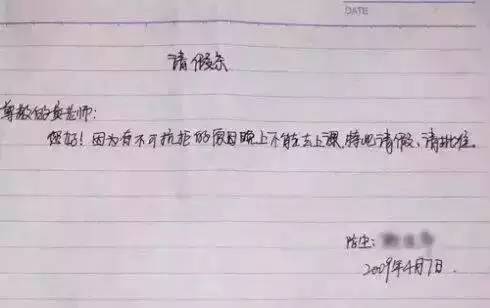 DATE
请假条
尊敬的老师:
您好!因为有不可抗拒的原因晚上不能去上课,特此请假,请批准。
2009年4月7日